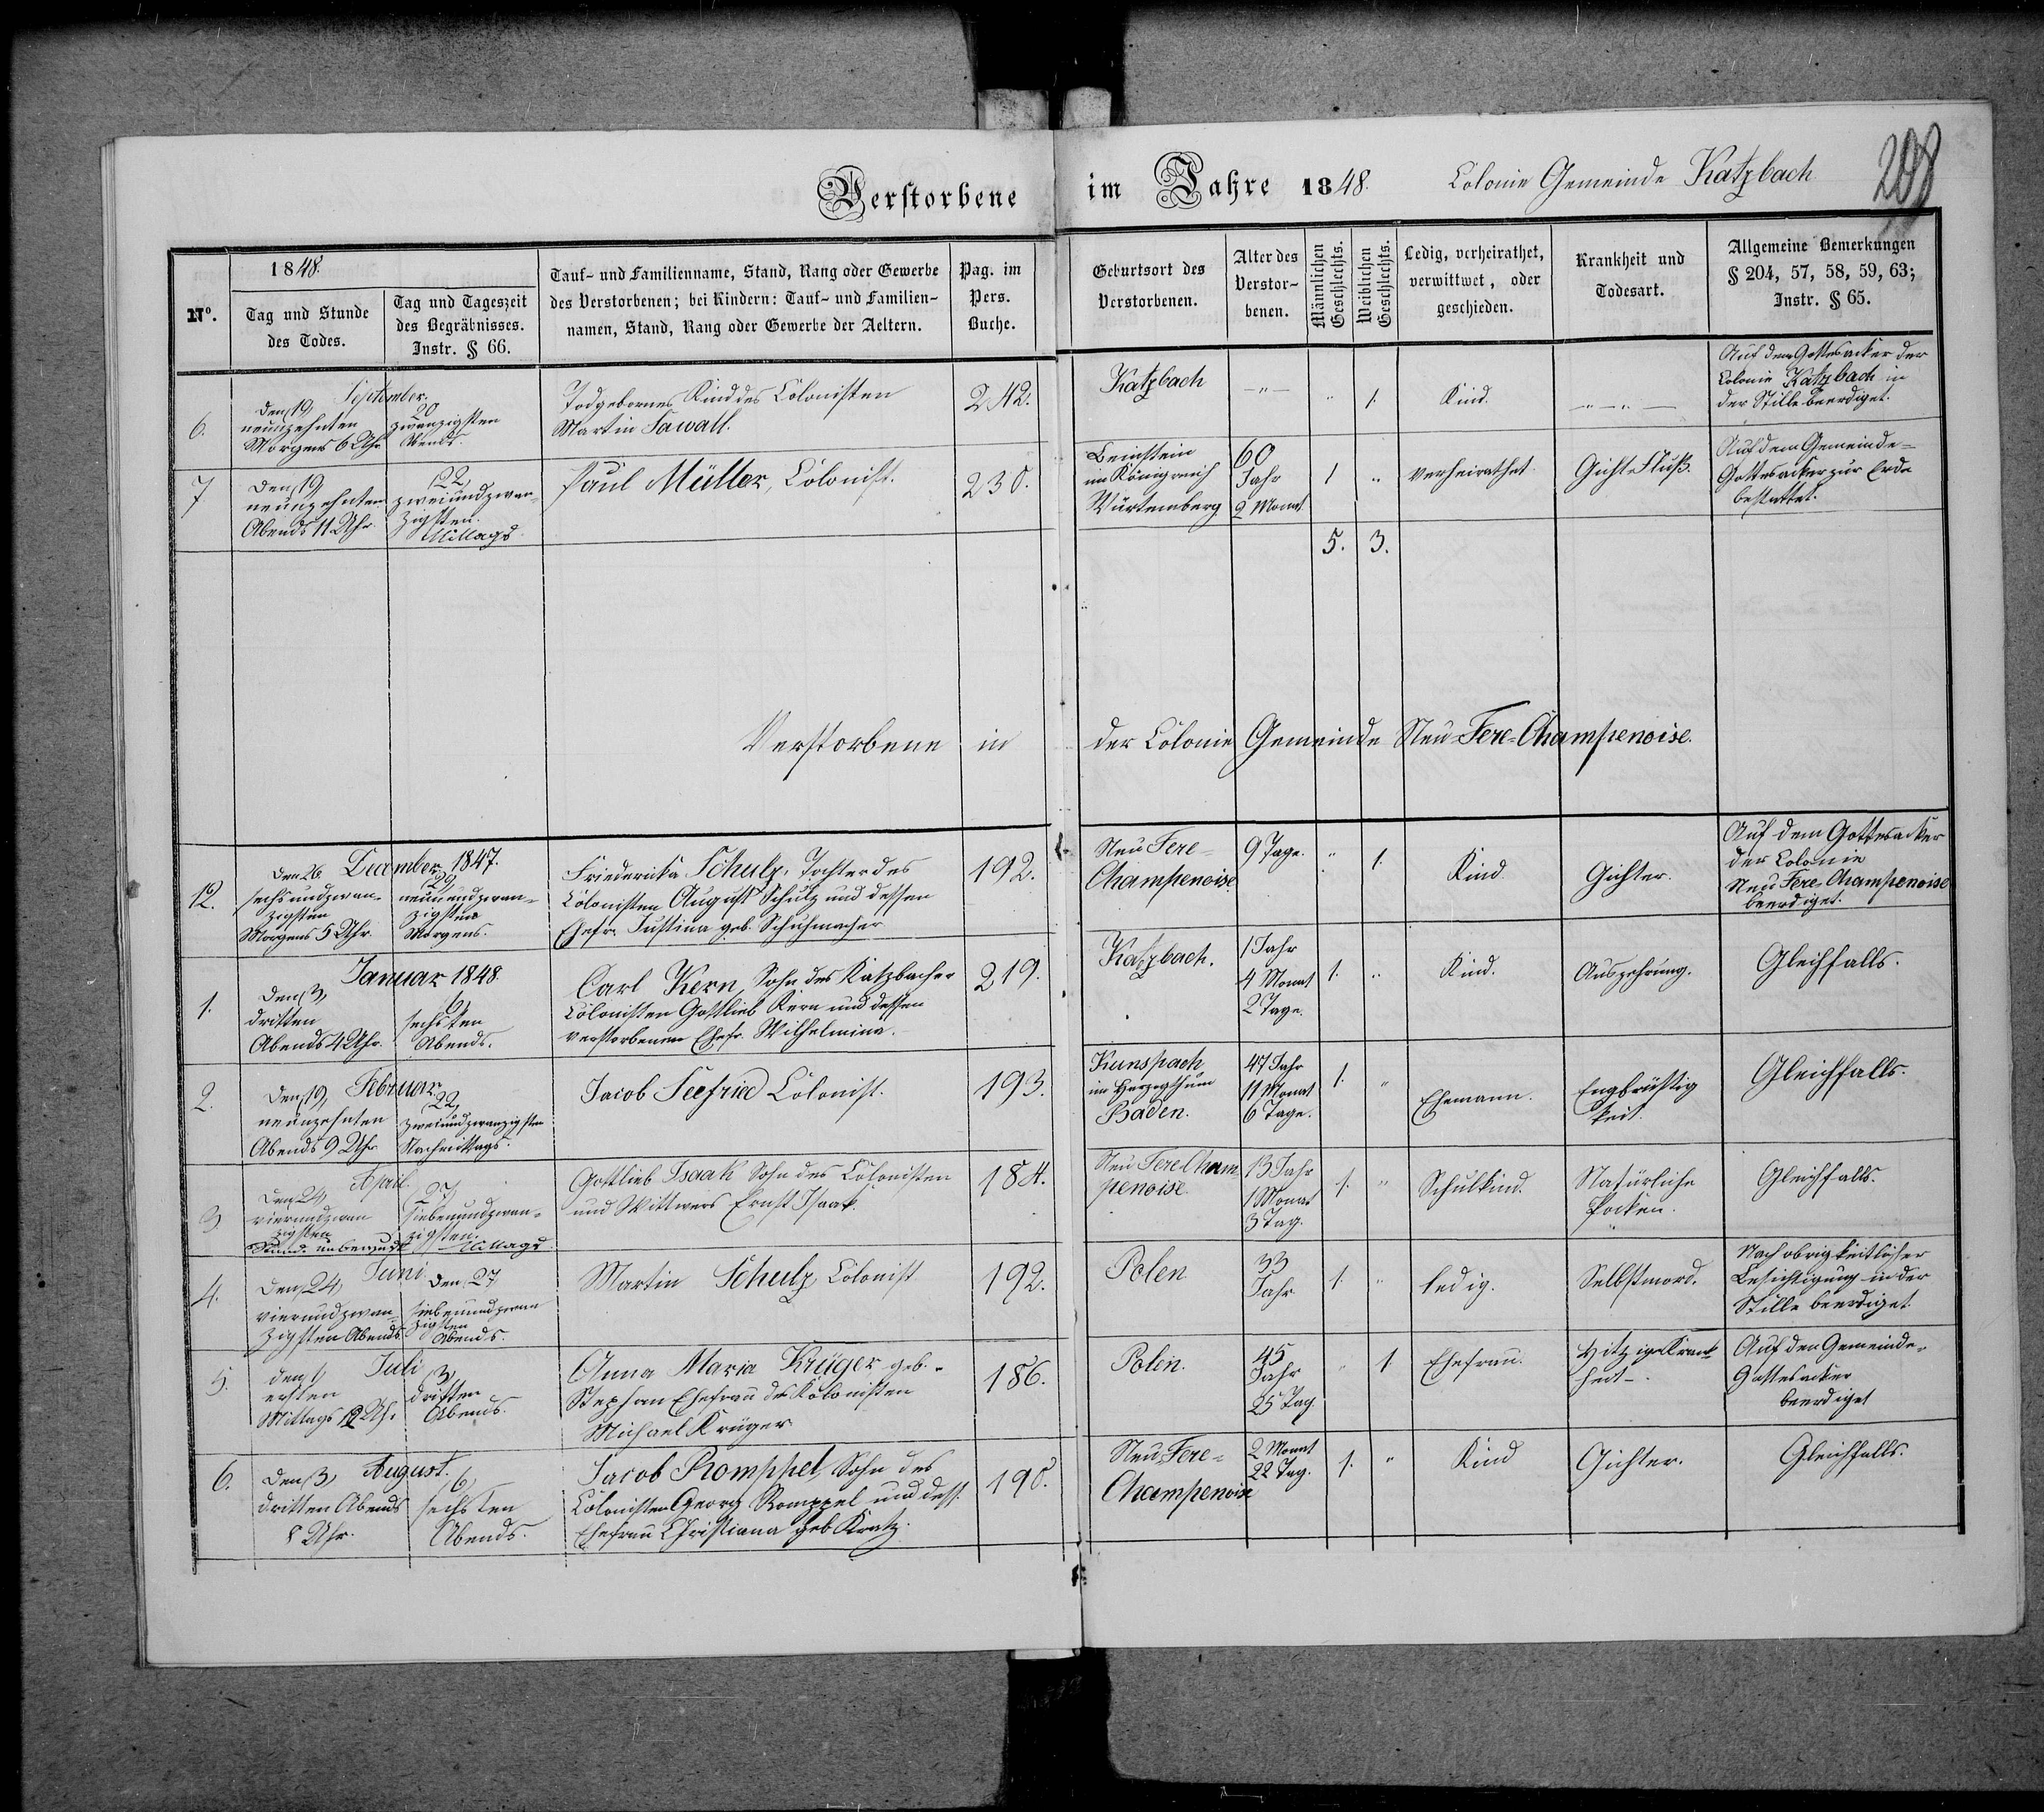 Verstorbene im Jahre 1848. Colonie Gemeinde Katzbach
208
No.
1848.
Tag und Stunde
des Todes.
Tag und Tageszeit
des Begräbnisses.
Instr. § 66.
Tauf- und Familienname, Stand, Rang oder Gewerbe
des Verstorbenen; bei Kindern: Tauf- und Familien-
namen, Stand, Rang oder Gewerbe der Aeltern.
Pag. im
Pers.
Buche.
Geburtsort des
Verstorbenen.
Alter des
Verstor-
benen.
Männlichen
Geschlechts.
Weiblichen
Geschlechts.
Ledig, verheirathet,
verwittwet, oder
geschieden.
Krankheit und
Todesart.
Allgemeine Bemerkungen
§ 204, 57, 58, 59, 63;
Instr. § 65.
6.
September.
Den 19,
neunzehnten
Morgens 6 Uhr
20
zwanzigsten
Abends.
Todgebornes Kind des Colonisten
Martin Sawall.
242.
Katzbach
-"-
"
1.
Kind.
"-"-
Auf dem Gottesacker der
Colonie Katzbach in
der Stille beerdiget.
7
Den 19,
neunzehnten
Abends 11 Uhr.
22,
zweiundzwan-
zigsten.
Mittags
Paul Müller, Colonist.
230.
Beinstein
im Königreich
Würtemberg
60
Jahr
2 Monat
1
"
verheirathet.
Gicht-Fluß.
Auf dem Gemeinde-
Gottesacker zur Erde
bestattet.
5. 3.
Verstorbene in der Colonie Gemeinde Neu-Fere-Champenoise.
12.
December 1847.
Den 26
sechsundzwan-
zigsten
Morgens 5 Uhr.
29,
neunundzwan-
zigsten
Morgens.
Friedericka Schulz, Tochter des
Colonisten August Schulz und dessen
Ehefr. Justina geb. Schuhmacher
192.
Neu Fere-
Champenoise.
9 Tage.
"
1.
Kind
Gichter.
Auf dem Gottesacker
der Colonie
Neu Fere-Champenoise
beerdiget.
1.
Januar 1848.
Den 3,
dritten
Abends 4 Uhr.
6,
sechsten
Abends.
Carl Kern, Sohn des Katzbacher
Colonisten Gottlieb Kern und dessen
verstorbenen Ehefr. Wilhelmina.
219.
Katzbach.
1 Jahr
4 Monat
2 Tage.
1.
"
Kind.
Auszehrung.
Gleichfalls.
2.
Februar.
Den 19,
neunzehnten
Abends 9 Uhr
22,
zweiundzwanzigsten
Nachmittags.
Jacob Seefried Colonist.
193.
Kunspach
im Herzogthum
Baden.
47 Jahr
11 Monat
6 Tage.
1.
"
Ehemann.
Engbrüstig
keit.
Gleichfalls.
3
April.
Den 24,
vierundzwan
zigsten
Stund. unbewußt
27,
siebenundzwan-
zigsten.
Mittags.
Gottlieb Isaak Sohn des Colonisten
und Wittwers Ernst Isaak.
184.
Neu Fere Cham-
penoise.
13 Jahr
1 Monat
3 Tag.
1.
"
Schulkind.
Natürliche
Pocken.
Gleichfalls.
4.
Juni
Den 24,
vierundzwan-
zigsten Abends
Den 27
siebenundzwan
zigsten
Abends.
Martin Schulz, Colonist
192.
Polen
33
Jahr
1.
"
ledig.
Selbstmord.
Nach obrigkeitlicher
Besichtigung in der
Stille beerdiget.
5.
Juli
den 1,
ersten
Mittags 12 Uhr
3,
dritten
Abends.
Anna Maria Krüger geb.
Stephan Ehefrau des Kolonisten
Michael Krüger
186.
Polen.
45
Jahr
25 Tag
"
1.
Ehefrau.
Hitzige Krank-
heit.
Auf den Gemeinde-
Gottesacker
beerdiget
6.
August.
Den 3,
dritten Abends
8 Uhr.
6,
sechsten
Abends.
Jacob Romppel, Sohn des
Colonisten Georg Romppel und dess.
Ehefrau Christiana geb Kratz.
190.
Neu Fere-
Champenoise
2 Monat
22 Tag.
1.
"
Kind
Gichter.
Gleichfalls.